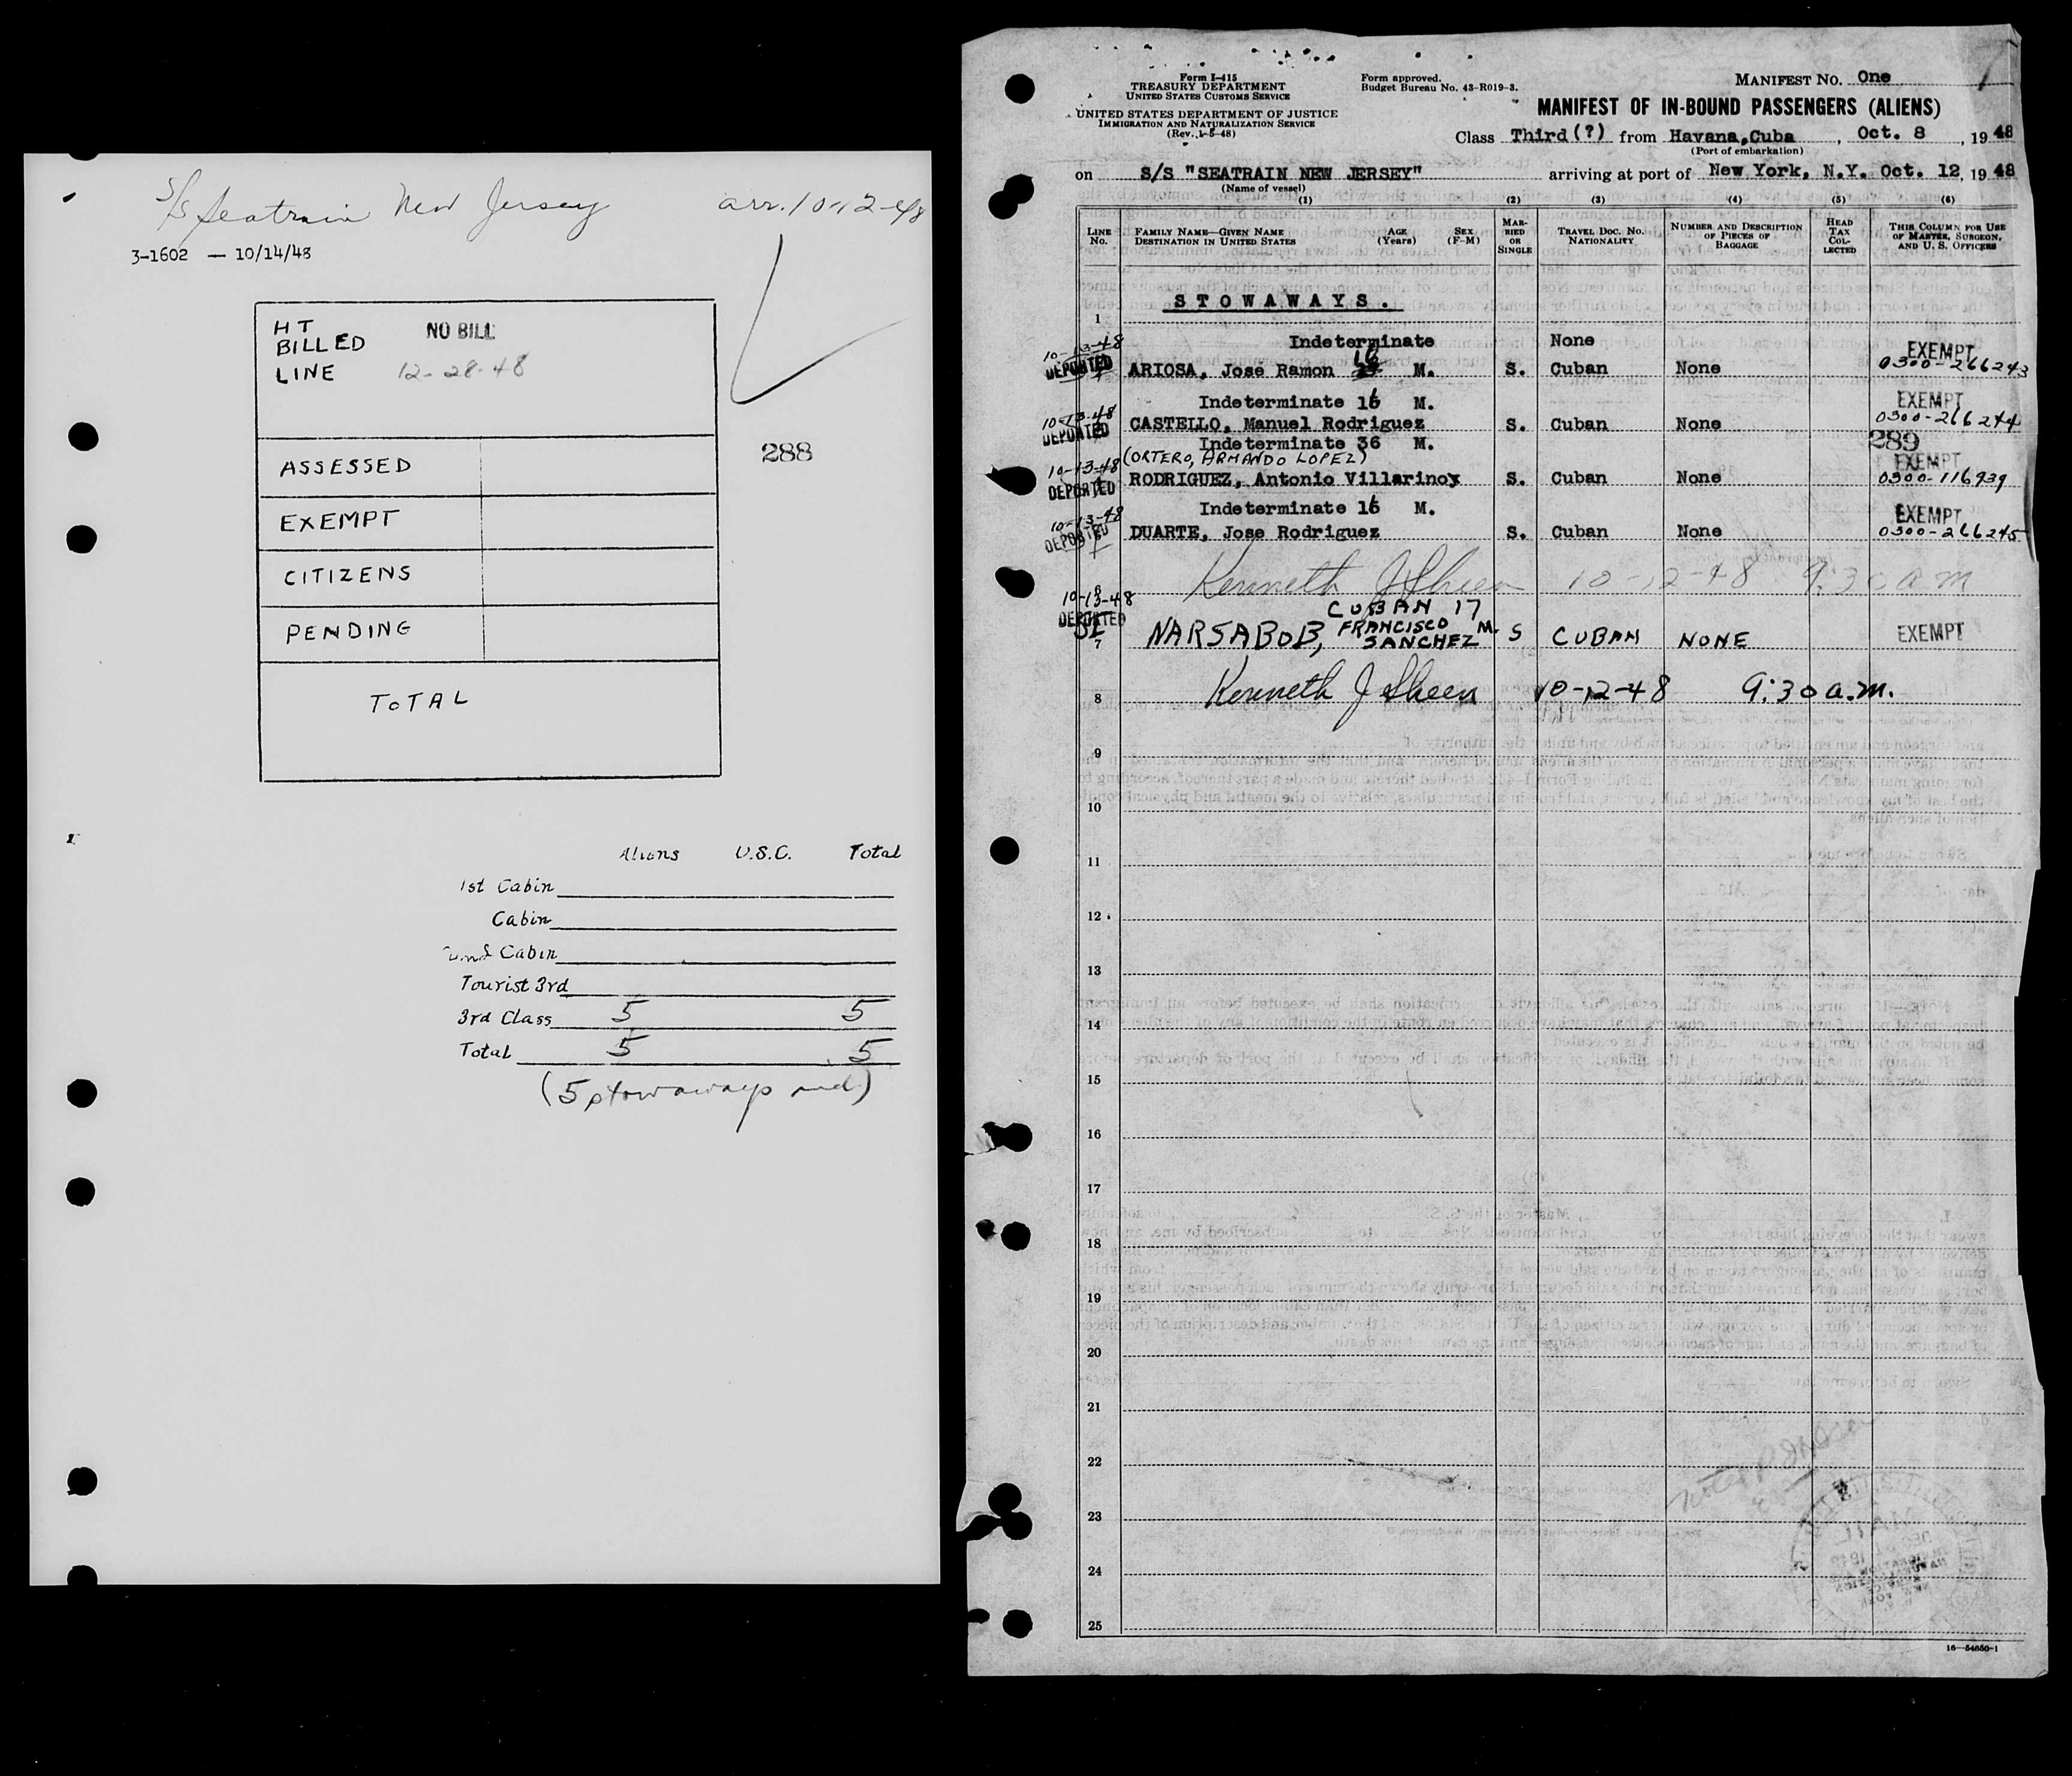 S/S Seatrain New Jersey arr. 10-12-48
3-1602 — 10/14/48
HT
BILLED
LINE
NO BILL
12-28-48
ASSESSED
EXEMPT
CITIZENS
PENDING
TOTAL
288
Aliens U.S.C. Total
1st Cabin
Cabin
Cabin
Tourist 3rd
3rd Class 5 5
Total 5 5
(5 stowaways
Form I-415
TREASURY DEPARTMENT
UNITED STATES CUSTOMS SERVICE
UNITED STATES DEPARTMENT OF JUSTICE
IMMIGRATION AND NATURALIZATION SERVICE
(Rev. 1-5-48)
Form approved.
Budget Bureau No. 43-R019-3.
MANIFEST NO. One
MANIFEST OF IN-BOUND PASSENGERS (ALIENS)
Class Third(?) from Havana, Cuba, Oct. 8, 1948
(Port of embarkation)
on S/S "SEATRAIN NEW JERSEY" arriving at port of New York, N.Y. Oct. 12, 1948
(Name of vessel)
(1) (2) (3) (4) (5) (6)
LINE No.
FAMILY NAME—GIVEN NAME
DESTINATION IN UNITED STATES
AGE (Years)
SEX (F-M)
MARRIED OR SINGLE
TRAVEL DOC. NO.
NATIONALITY
NUMBER AND DESCRIPTION OF PIECES OF BAGGAGE
HEAD TAX COLLECTED
THIS COLUMN FOR USE OF MASTER, SURGEON, AND U. S. OFFICERS
STOWAWAYS.
1
10-13-48 Indeterminate None EXEMPT
DEPORTED ARIOSA, Jose Ramon 16 M. S. Cuban None 0300-266243
10-13-48 Indeterminate 16 M. EXEMPT
DEPORTED CASTELLO, Manuel Rodriguez S. Cuban None 0300-266244
Indeterminate 36 M. 289
10-13-48 (ORTERO, ARMANDO LOPEZ) EXEMPT
DEPORTED RODRIGUEZ, Antonio Villarinoy S. Cuban None 0300-116939
10-13-48 Indeterminate 16 M. EXEMPT
DEPORTED DUARTE, Jose Rodriguez S. Cuban None 0300-266245
Kenneth J Sheen 10-12-48 9:30 am
10-13-48 CUBAN 17
DEPORTED NARSABOB, FRANCISCO SANCHEZ M. S CUBAN NONE EXEMPT
7
8 Kenneth J Sheen 10-12-48 9:30 a.m.
9
10
11
12
13
14
15
16
17
18
19
20
21
22
23
24
25
16—54650-1